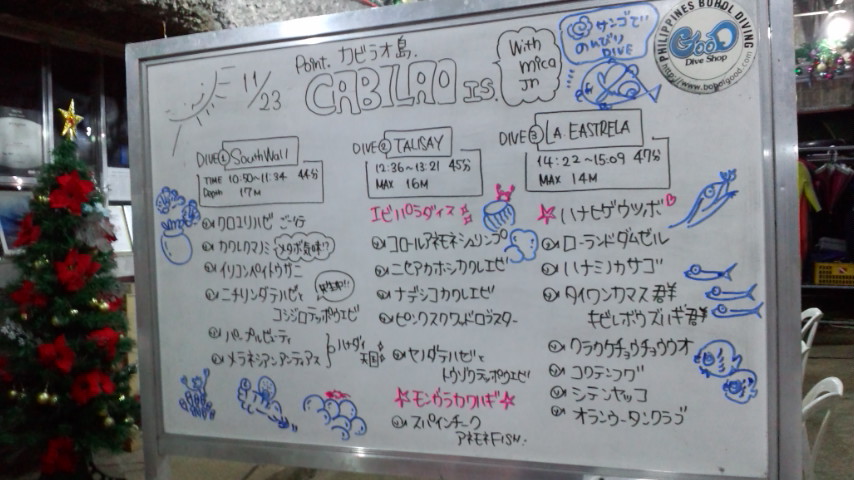 Point. カビラオ島.
11/23
CABILAO IS.
With mica jn
サンゴで
のんびり
DIVE
PHILIPPINES BOHOL DIVING
GooD
Dive Shop
http://www.bohol-good.com
DIVE① South Wall
TIME 10:50~11:34 44分
Depth 17M
クロユリハゼ ご一行
カクレクマノミ メタボ気味!?
イソコンペイトウガニ
ニチリンダテハゼと
コシジロテッポウエビ
パープルビューティ
メラネシアンアンティアス
ハナダイ天国
DIVE② TALISAY
12:36~13:21 45分
MAX 16M
エビパラダイス
コロールアネモネシュリンプ
ニセアカホシカクレエビ
ナデシコカクレエビ
ピンクスクワッドロブスター
ヤノダテハゼと
トウゾクテッポウエビ
☆モンガラカワハギ☆
スパインチーク
アネモネFISH.
DIVE③ LA EASTRELA
14:22~15:09 47分
MAX 14M
☆ハナヒゲウツボ♡
ローランドダムゼル
ハナミノカサゴ
タイワンカマス群
キビレボウズハギ群
クラカケチョウチョウウオ
コクテンフグ
シテンヤッコ
オランウータンクラブ